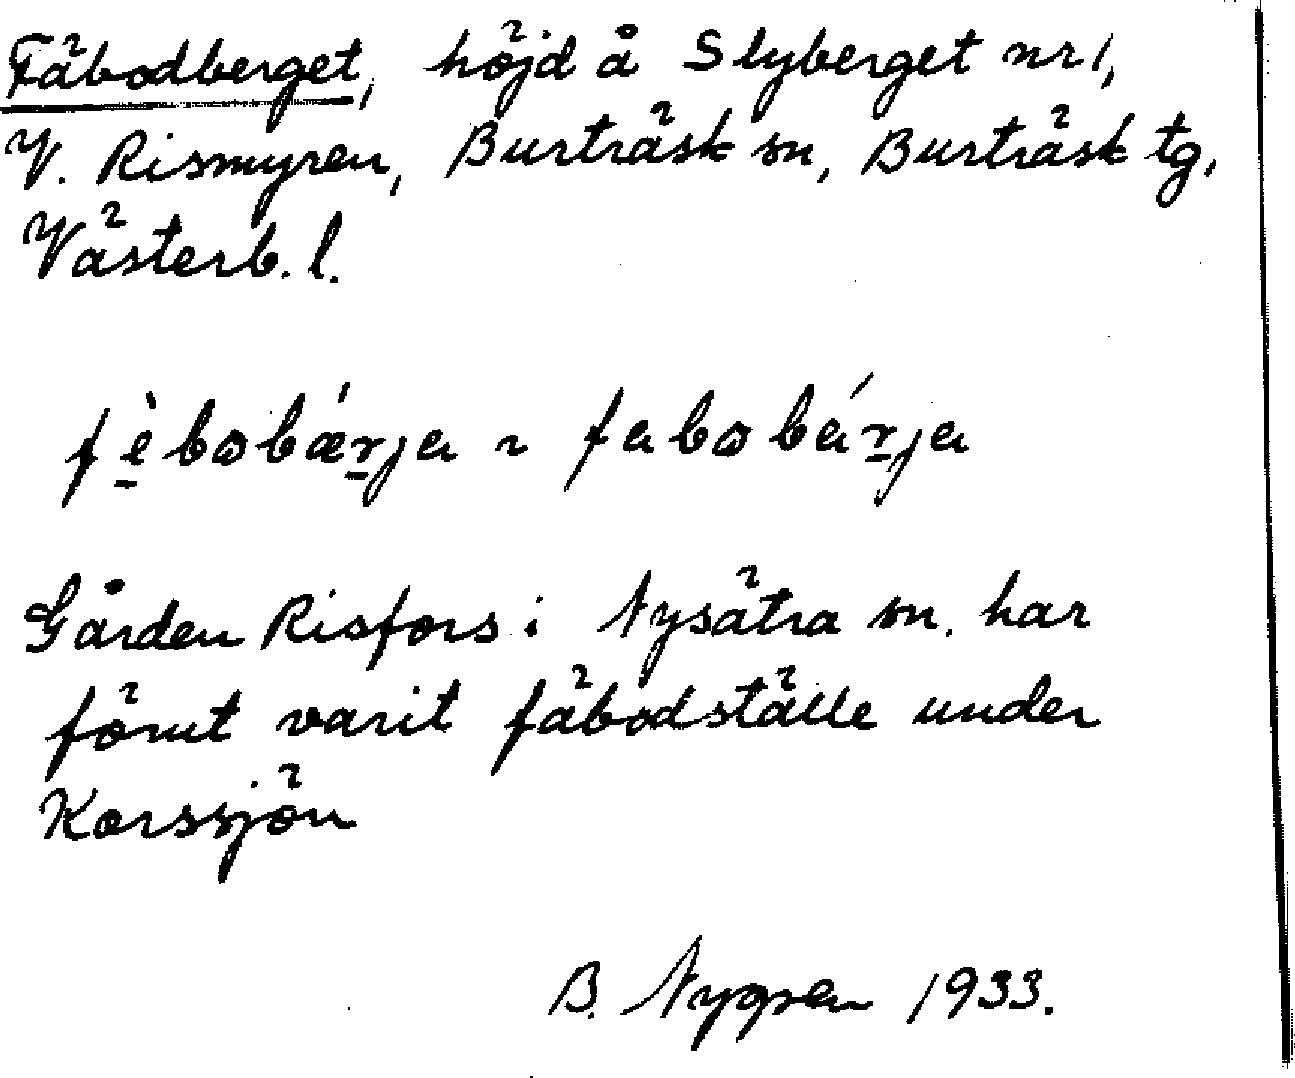 Fäbodberget, höjd å Slyberget nr 1,
V. Rismyren, Burträsk sn, Burträsk tg,
Västerb. l.
fèbobǽrja ~ fabobárja
Gården Risfors i Nysätra sn. har
förut varit fäbodställe under
Korssjön
B. Nygren 1933.